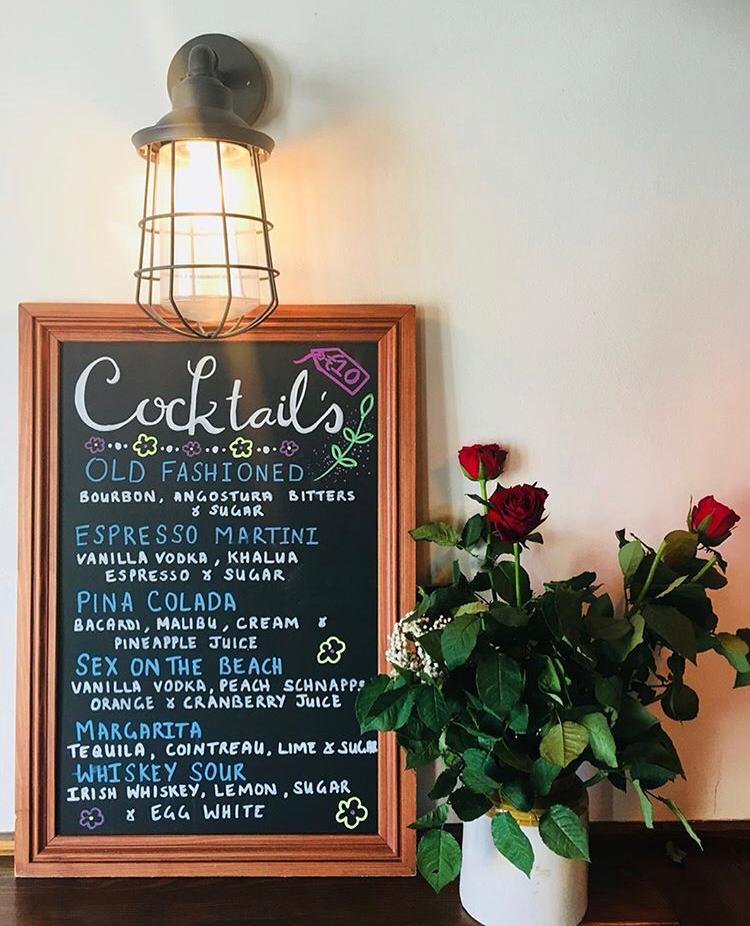 Cocktail's
£10
OLD FASHIONED
BOURBON, ANGOSTURA BITTERS
& SUGAR
ESPRESSO MARTINI
VANILLA VODKA, KHALUA
ESPRESSO & SUGAR
PINA COLADA
BACARDI, MALIBU, CREAM &
PINEAPPLE JUICE
SEX ON THE BEACH
VANILLA VODKA, PEACH SCHNAPPS
ORANGE & CRANBERRY JUICE
MARGARITA
TEQUILA, COINTREAU, LIME & SUGAR
WHISKEY SOUR
IRISH WHISKEY, LEMON, SUGAR
& EGG WHITE